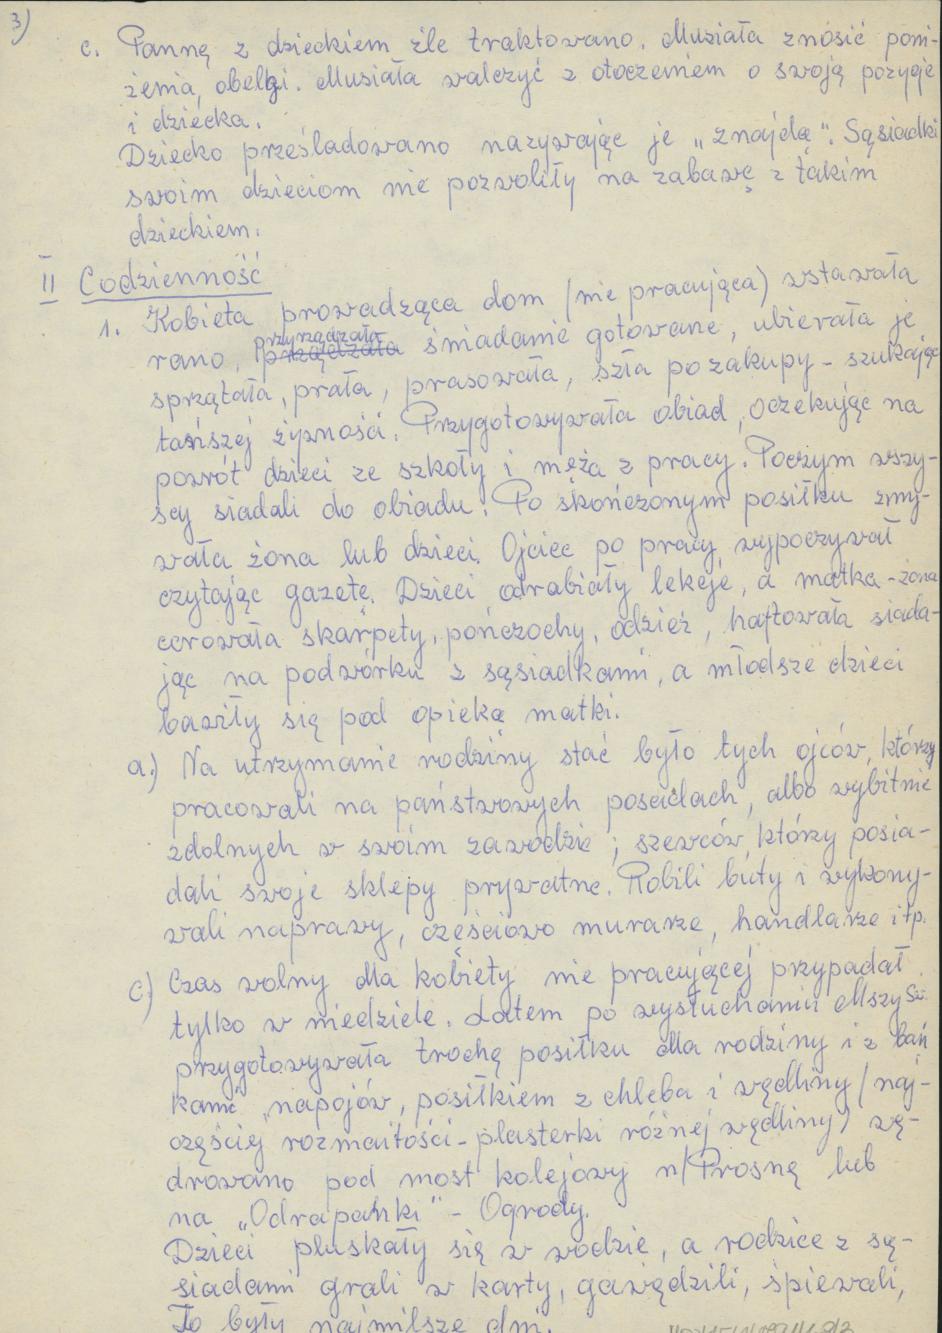 3)
c. Pannę z dzieckiem źle traktowano. Musiała znosić poni-
żenia, obelgi. Musiała walczyć z otoczeniem o swoją pozycję
i dziecka.
Dziecko prześladowano nazywając je „znajdą". Sąsiadki
swoim dzieciom nie pozwoliły na zabawę z takim
dzieckiem.
II Codzienność
1. Kobieta prowadząca dom (nie pracująca) wstawała
rano, przyrządzała śniadanie gotowane, ubierała je
sprzątała, prała, prasowała, szła po zakupy - szukając
tańszej żywności. Przygotowywała obiad, oczekując na
powrót dzieci ze szkoły i męża z pracy. Poczym wszy-
scy siadali do obiadu. Po skończonym posiłku zmy-
wała żona lub dzieci. Ojciec po pracy wypoczywał
czytając gazetę. Dzieci odrabiały lekcje, a matka - żona
cerowała skarpety, pończochy, odzież, haftowała siada-
jąc na podwórku z sąsiadkami, a młodsze dzieci
bawiły się pod opieką matki.
a.) Na utrzymanie rodziny stać było tych ojców, którzy
pracowali na państwowych posadach, albo wybitnie
zdolnych w swoim zawodzie; szewców, którzy posia-
dali swoje sklepy prywatne. Robili buty i wykony-
wali naprawy, częściowo murarze, handlarze itp.
c) Czas wolny dla kobiety nie pracującej przypadał
tylko w niedziele. Latem po wysłuchaniu Mszy Św.
przygotowywała trochę posiłku dla rodziny i z bań
kami napojów, posiłkiem z chleba i wędliny (naj-
częściej rozmaitości - plasterki różnej wędliny) wę-
drowano pod most kolejowy n/Prosną lub
na „Odrapanki" - Ogrody.
Dzieci pluskały się w wodzie, a rodzice z są-
siadami grali w karty, gawędzili, śpiewali,
To były najmilsze dni.